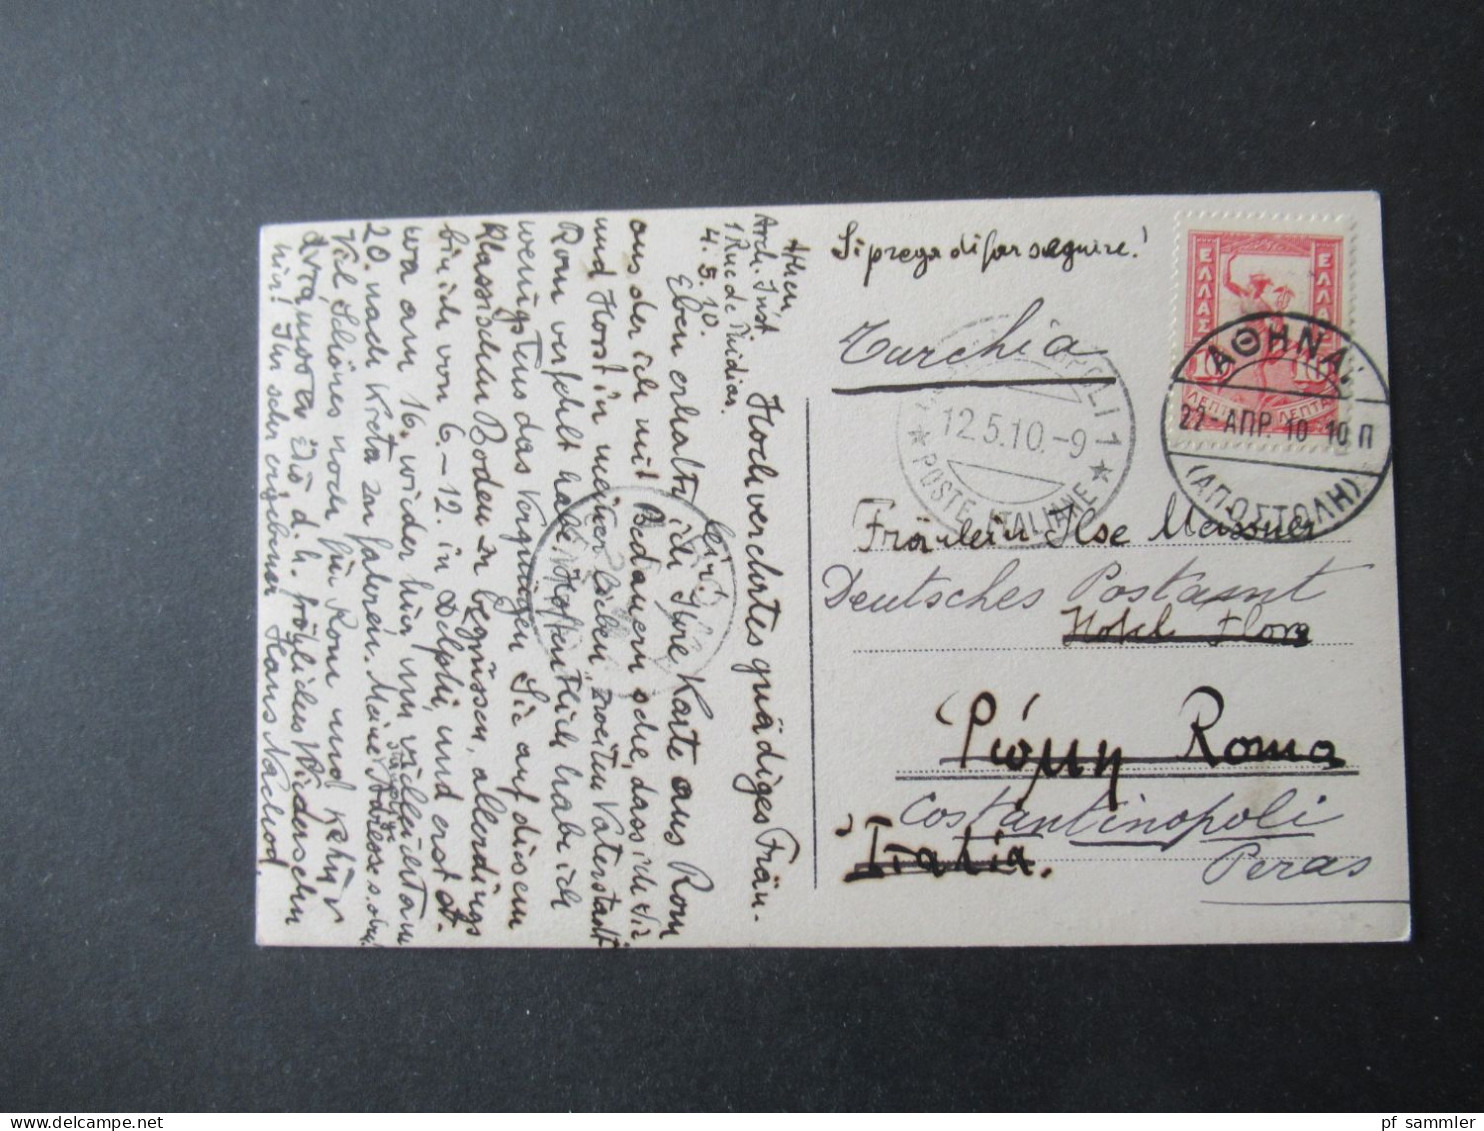 Athen
Arch. Inst.
1 Rue de Phidias.
4. 5. 10.
Hochverehrtes gnädiges Fräu-
lein!
Eben erhalte ich Ihre Karte aus Rom
aus der ich mit Bedauern sehe, dass ich Sie
und Horst in meiner lieben, zweiten Vaterstadt
Rom verfehlt habe. Hoffentlich habe ich
wenigstens das Vergnügen Sie auf diesem
klassischen Boden zu begrüssen, allerdings
bin ich vom 6.-12. in Delphi, und erst
am 16. wieder hier um vielleicht am
20. nach Kreta zu fahren. Meine Adresse s. oben
Viel Schönes noch für Rom und
d. h. fröhliches Wiedersehn
hier! Ihr sehr ergebener Hans Nachod.
Si prega di far seguire!
Turchia
POLI 1
12.5.10.-9
★ POSTE ITALIANE ★
ΕΛΛΑΣ ΕΛΛΑΣ
10 10
ΛΕΠΤΑ ΛΕΠΤΑ
ΑΘΗΝΑΙ
22 ΑΠΡ. 10 10 Π
(ΑΠΟΣΤΟΛΗ)
Fräulein Ilse Meissner
Deutsches Postamt
Hotel Flora
Ρώμη Roma
Costantinopoli
Italia.
Peras
pf sammler